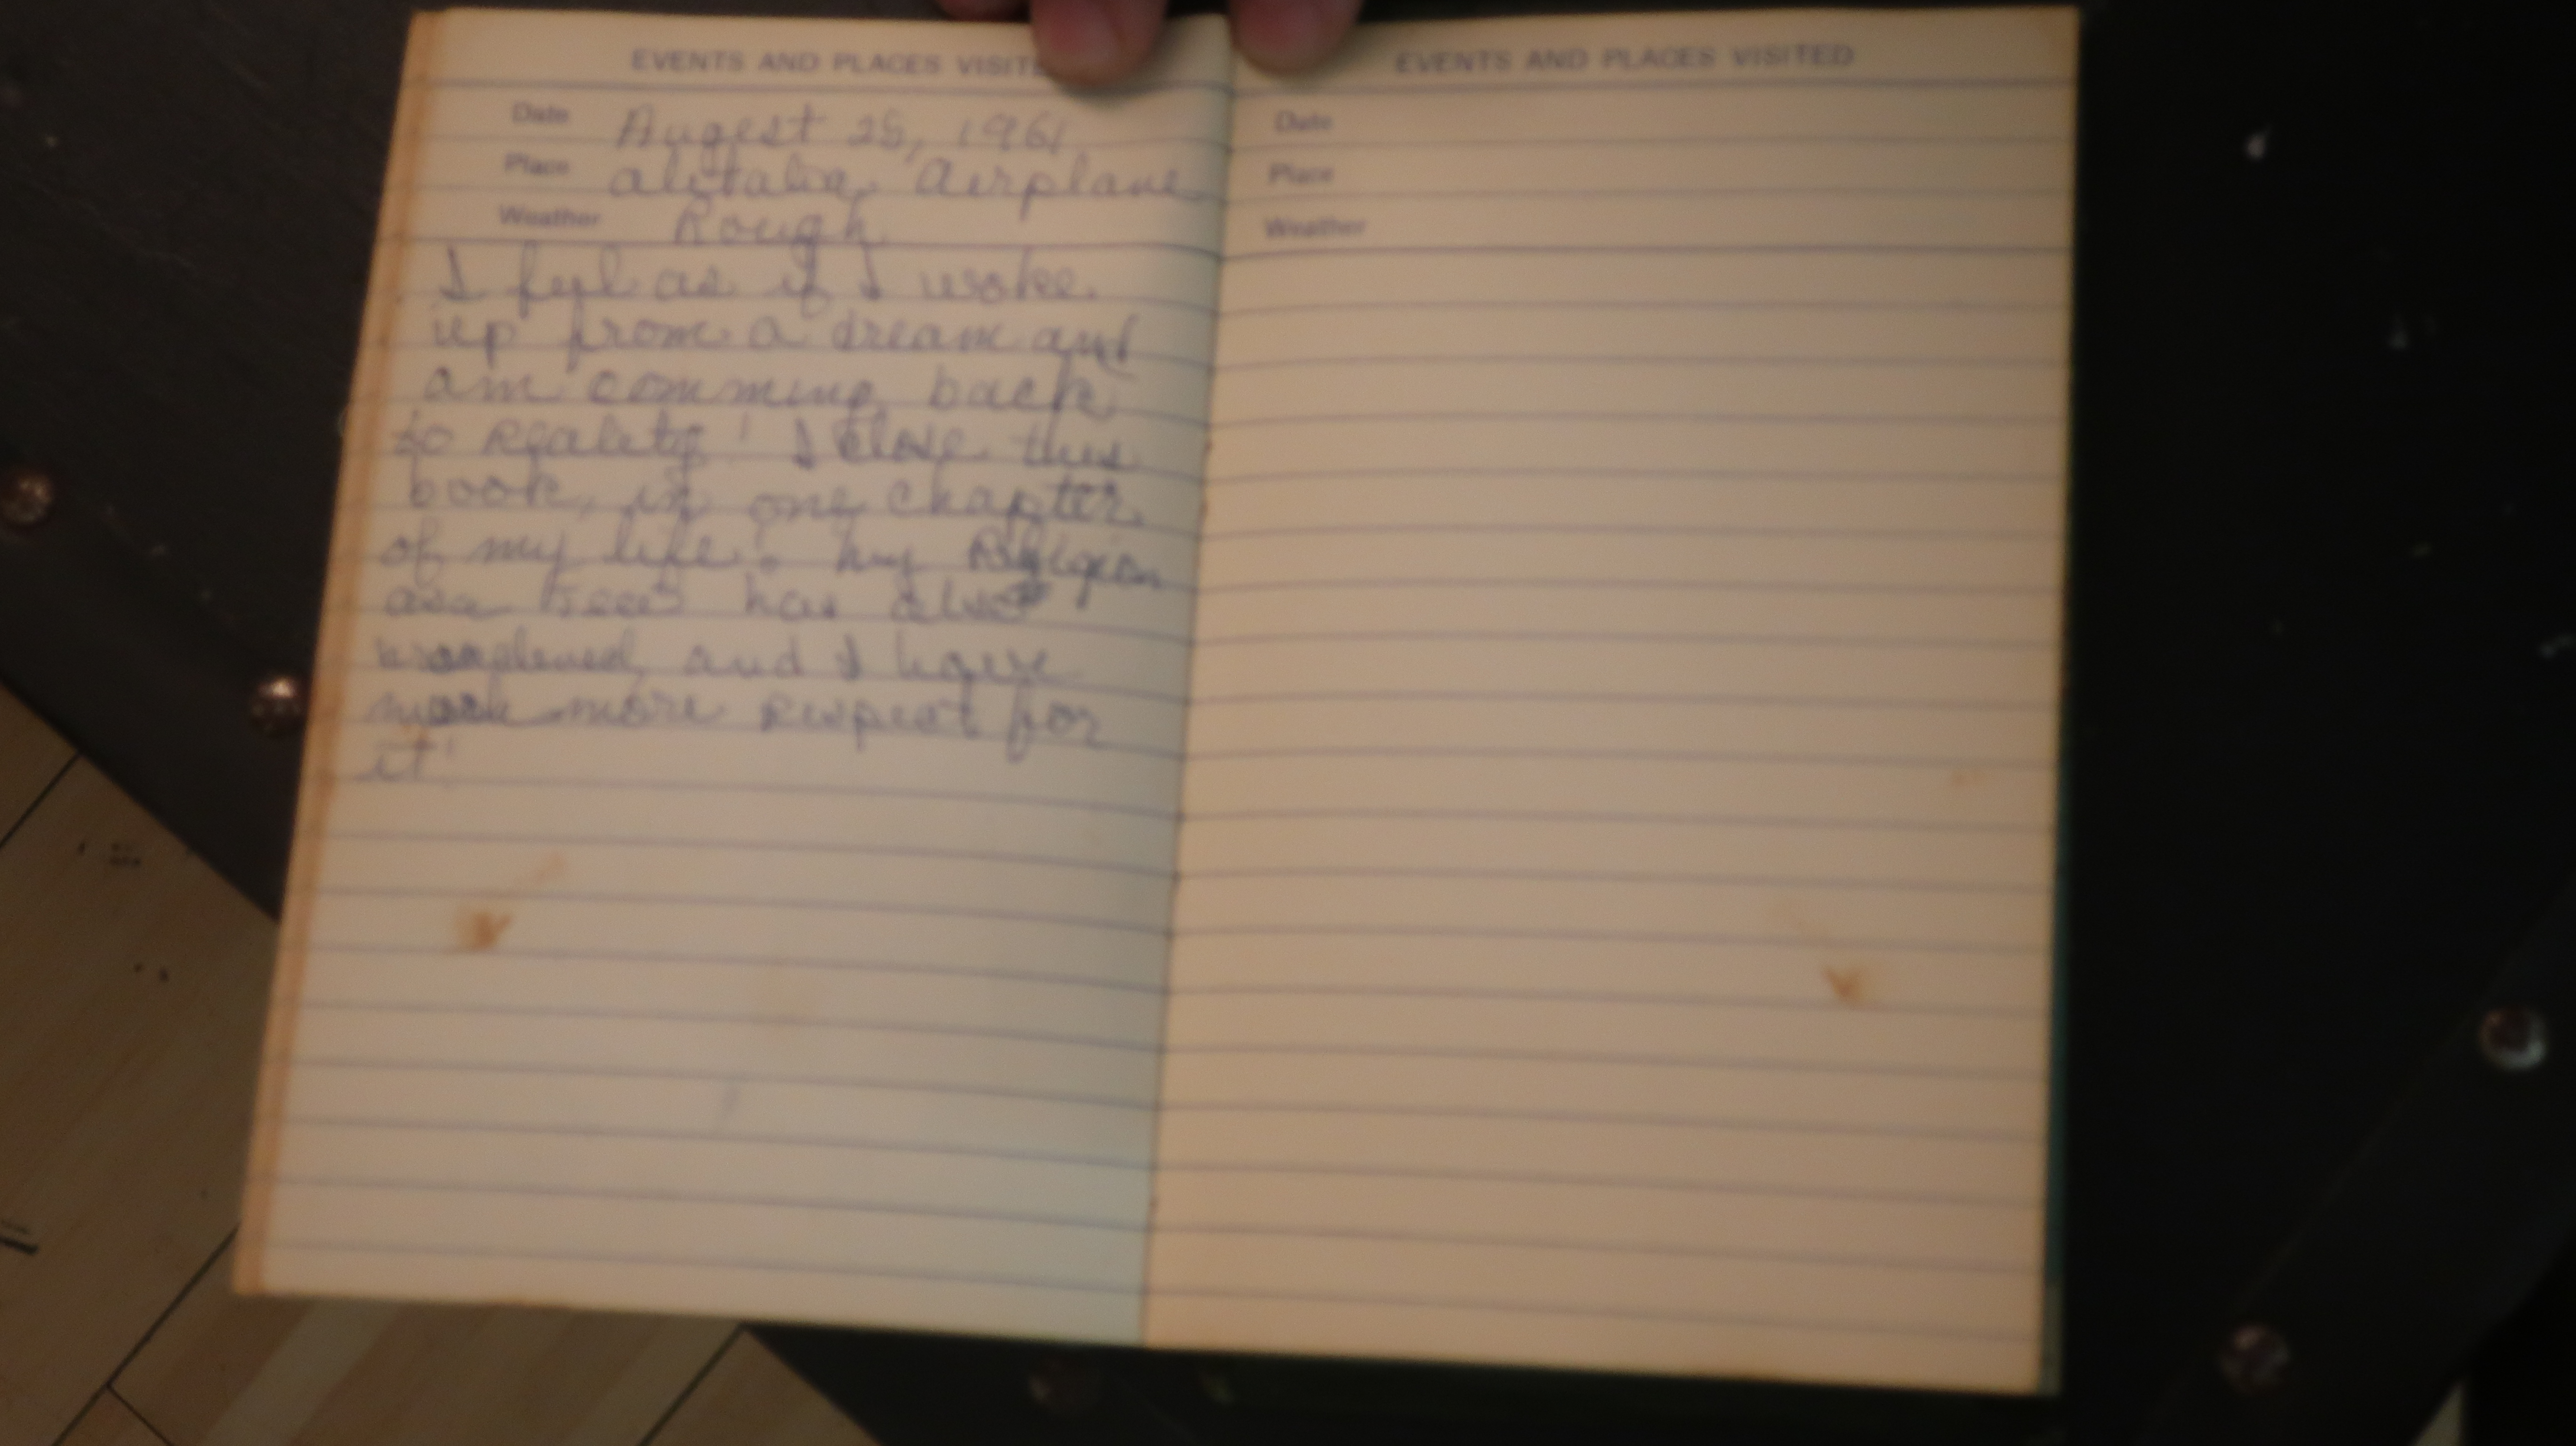 EVENTS AND PLACES VISITE
Date Augest 28, 1961
Place alitalia, Airplane
Weather Rough
I feel as if I woke
up from a dream and
am comming back
to reality! I close this
book, in one chapter
of my life. My Religion
as a has also
and I have
more respect for
it!
EVENTS AND PLACES VISITED
Date
Place
Weather